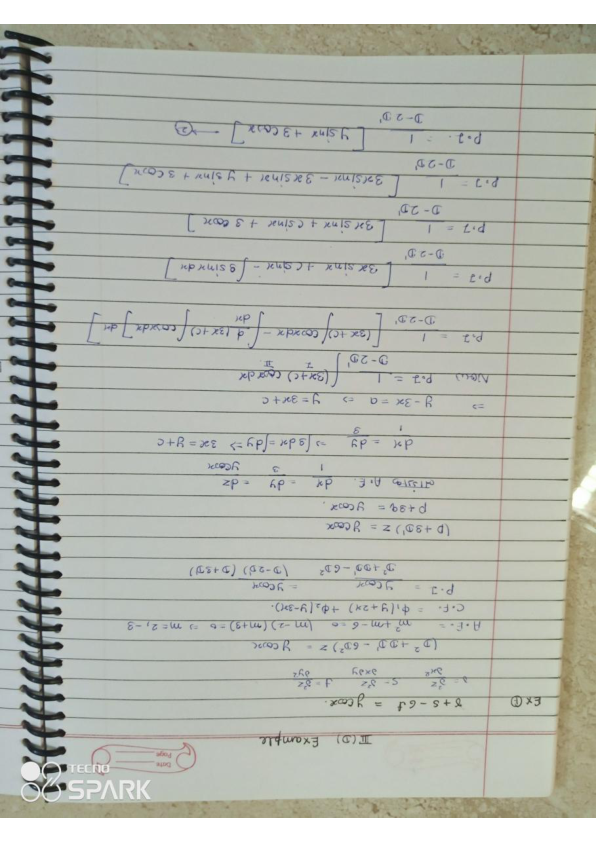 Date
Page
II (D) Example
Ex ① r + s - 6t = y cosx.
r = ∂²z/∂x² s = ∂²z/∂x∂y t = ∂²z/∂y²
(D² + DD' - 6D'²) z = y cosx
A.E = m² + m - 6 = 0 (m-2)(m+3) = 0 ⇒ m = 2, -3
C.F. = φ₁(y+2x) + φ₂(y-3x).
P.I = y cosx / D² + DD' - 6D'² = y cosx / (D-2D') (D+3D')
(D+3D') z = y cosx
p + 3q = y cosx.
A.E. dx/1 = dy/3 = dz/y cosx
dx/1 = dy/3 ⇒ ∫3dx = ∫dy ⇒ 3x = y + c
⇒ y - 3x = a ⇒ y = 3x + c
Now P.I = 1/D-2D' ∫(3x+c) cosx dx
I II
P.I = 1/D-2D' [(3x+c)∫cosxdx - ∫d/dx(3x+c)∫cosxdx]dx]
P.I = 1/D-2D' [3x sinx + c sinx - ∫3 sinx dx]
P.I = 1/D-2D' [3x sinx + c sinx + 3 cosx]
P.I = 1/D-2D' [3x sinx - 3x sinx + y sinx + 3 cosx]
P.I. = 1/D-2D' [y sinx + 3 cosx] → ②
TECNO
SPARK